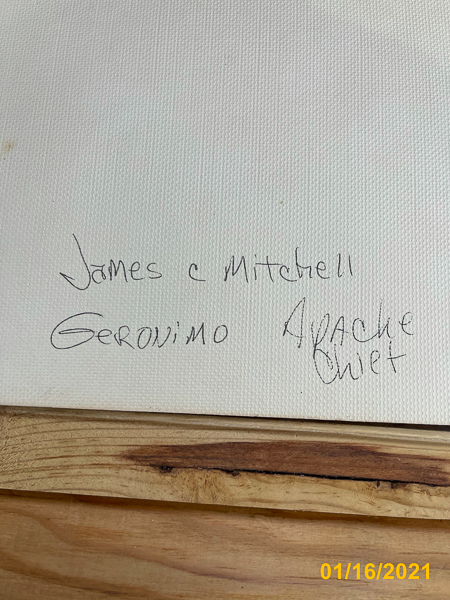 James c Mitchell
GERONiMO Apache
Chief
01/16/2021